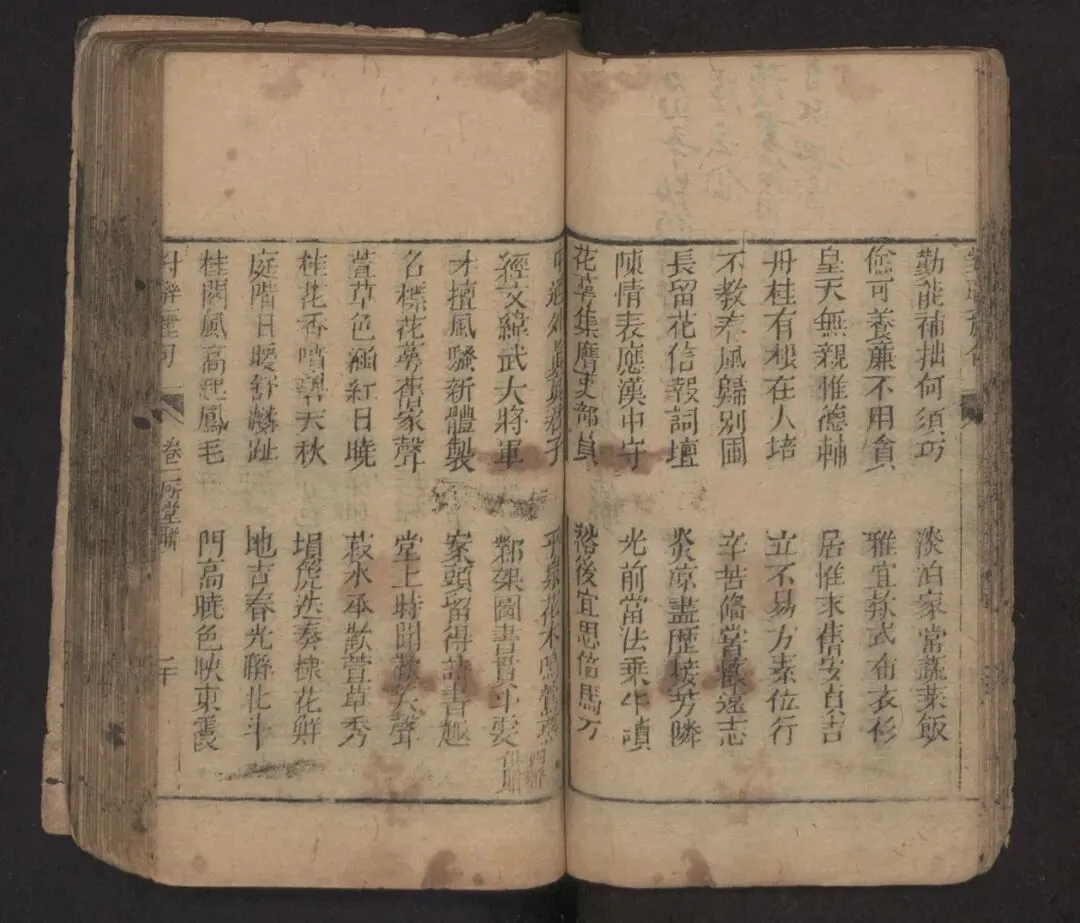 勤能補拙何須巧
淡泊家常蔬菜飯
儉可養廉不用貪
雅宜款式布衣衫
皇天無親惟德輔
居惟末雋安貞吉
丹桂有根在人培
立不易方素位行
不教春風歸別圃
辛苦備嘗懷遠志
長留花信報詞壇
炎涼盡歷接芳隣
陳情表應漢中守
光前當法乘牛讀
花萼集膺史部員
裕後宜思倚馬才
經文緯武大將軍
鄴架圖書貫斗雯
才擅風騷新體製
家頭留得詩書趣
名標花萼舊家聲
堂上時聞歡笑聲
萱草色涵紅日曉
菽水承歡萱草秀
桂花香噴碧天秋
塤箎迭奏棣花鮮
庭階日暖舒麟趾
地吉春光聯北斗
桂閣風高起鳳毛
門高曉色映東震
卷二 所堂聯
二十